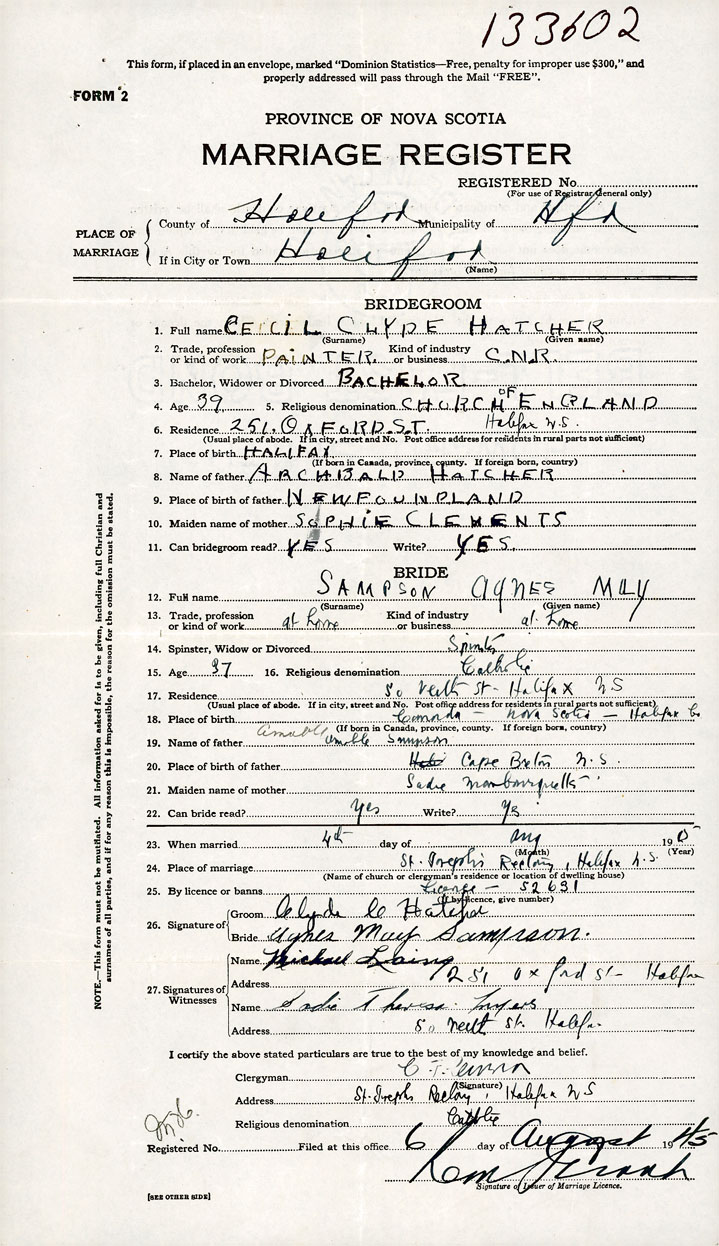 133602
This form, if placed in an envelope, marked “Dominion Statistics—Free, penalty for improper use $300,” and
properly addressed will pass through the Mail “FREE”.
FORM 2
PROVINCE OF NOVA SCOTIA
MARRIAGE REGISTER
REGISTERED No.
(For use of Registrar General only)
PLACE OF MARRIAGE
County of Halifax Municipality of Hfx
If in City or Town Halifax
(Name)
BRIDEGROOM
1. Full name CECIL CLYDE HATCHER
(Surname) (Given name)
2. Trade, profession or kind of work PAINTER. Kind of industry or business C.N.R.
3. Bachelor, Widower or Divorced BACHELOR
4. Age 39 5. Religious denomination CHURCH OF ENGLAND
6. Residence 251. OXFORD. ST. Halifax N.S.
(Usual place of abode. If in city, street and No. Post office address for residents in rural parts not sufficient)
7. Place of birth HALIFAX
(If born in Canada, province, county. If foreign born, country)
8. Name of father ARCHIBALD HATCHER
9. Place of birth of father NEWFOUNDLAND
10. Maiden name of mother SOPHIE CLEMENTS
11. Can bridegroom read? YES Write? YES.
BRIDE
12. Full name SAMPSON AGNES MAY
(Surname) (Given name)
13. Trade, profession or kind of work at home Kind of industry or business at home
14. Spinster, Widow or Divorced Spinster
15. Age 37 16. Religious denomination Catholic
17. Residence 50 St. Halifax NS
(Usual place of abode. If in city, street and No. Post office address for residents in rural parts not sufficient)
18. Place of birth Canada — Nova Scotia — Halifax Co
(If born in Canada, province, county. If foreign born, country)
19. Name of father Amable Sampson
20. Place of birth of father Cape Breton N.S.
21. Maiden name of mother Sadie
22. Can bride read? Yes Write? Yes
23. When married 4th day of Aug 19
(Month) (Year)
24. Place of marriage St. Joseph's Rectory, Halifax N.S.
(Name of church or clergyman's residence or location of dwelling house)
25. By licence or banns License — 52631
(If by licence, give number)
26. Signature of
Groom Clyde C Hatcher
Bride Agnes May Sampson.
27. Signatures of Witnesses
Name Michael Laing
Address 251 Oxford St - Halifax
Name Sadie Theresa
Address 50 St. Halifax
I certify the above stated particulars are true to the best of my knowledge and belief.
Clergyman
(Signature)
Address St. Joseph's Rectory, Halifax NS
Religious denomination Catholic
Registered No. Filed at this office 6 day of August 1945
Signature of Issuer of Marriage Licence.
[SEE OTHER SIDE]
NOTE.—This form must not be mutilated. All information asked for is to be given, including full Christian and
surnames of all parties, and if for any reason this is impossible, the reason for the omission must be stated.